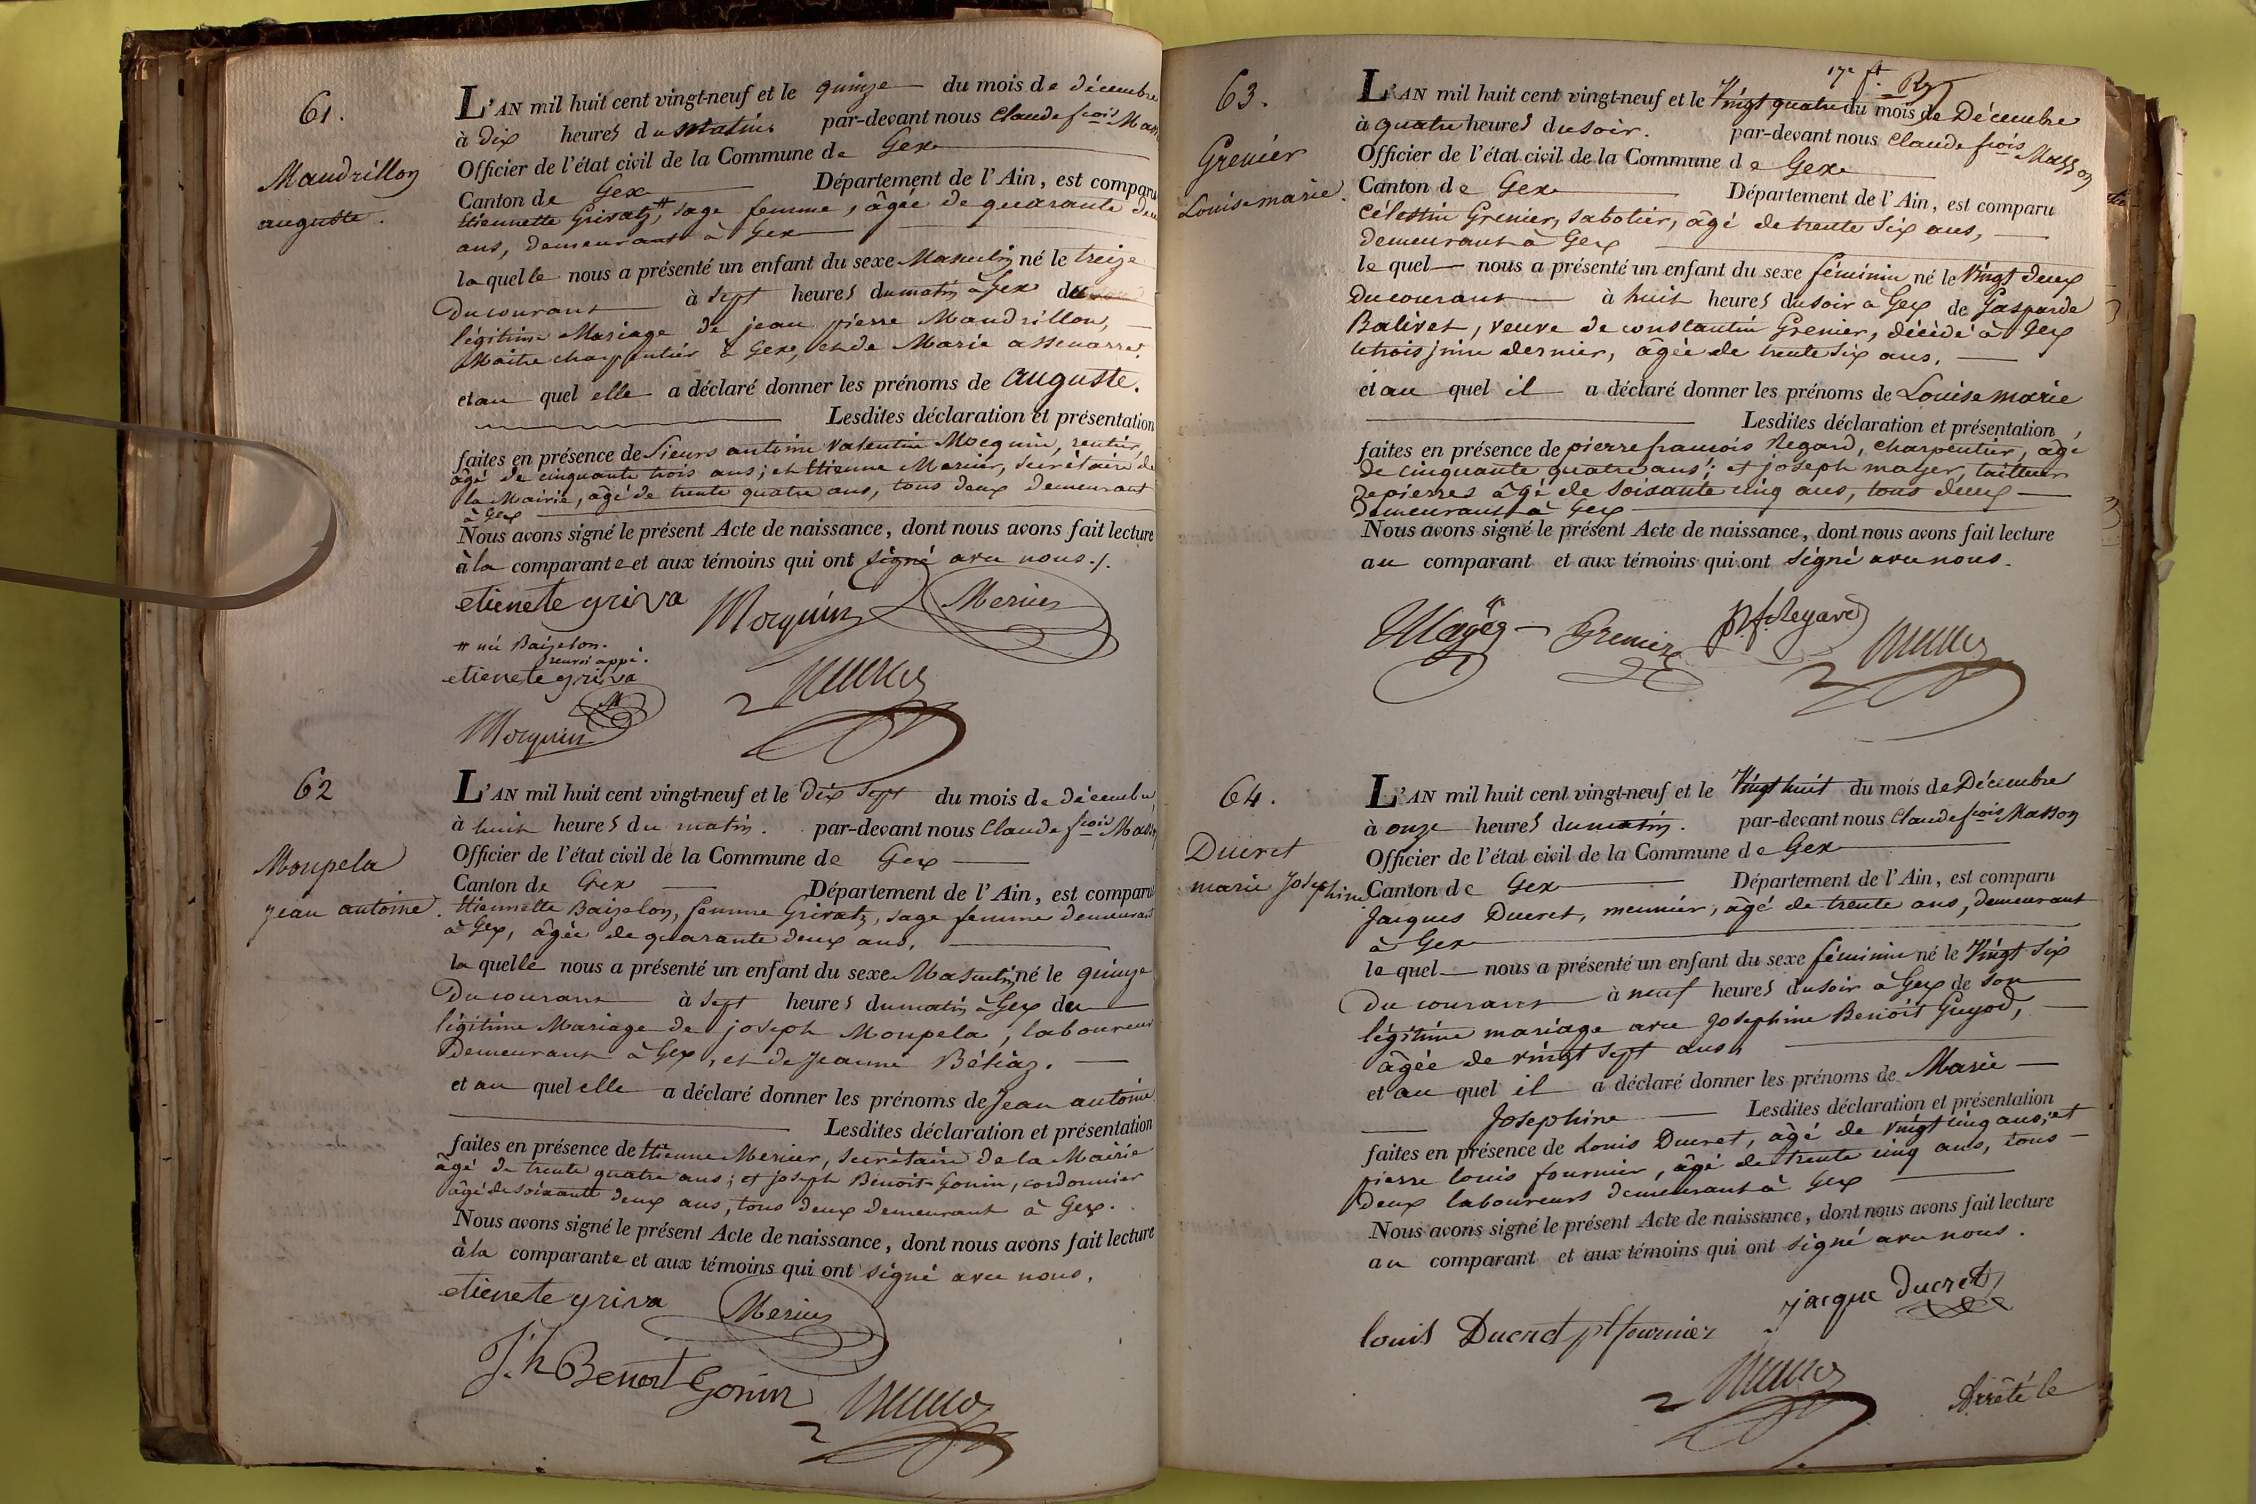 61.
Maudrillon
auguste.
L'AN mil huit cent vingt-neuf et le quinze du mois de décembre
à dix heures du matin par-devant nous Claude fcois Mass
Officier de l'état civil de la Commune de Gex
Canton de Gex Département de l'Ain, est comparu
Etiennette Grivatz, sage femme, âgée de quarante deux
ans, demeurant à Gex
laquelle nous a présenté un enfant du sexe Masculin né le treize
Du courant à sept heures du matin à Gex du
légitime Mariage de jean pierre Maudrillon,
Maitre charpentier à Gex, et de Marie
et au quel elle a déclaré donner les prénoms de auguste.
Lesdites déclaration et présentation
faites en présence de Sieurs antoine Valentin Mocquin, rentier,
âgé de cinquante trois ans; et Etienne Mercier, secrétaire de
la Mairie, âgé de trente quatre ans, tous deux demeurant
à Gex
Nous avons signé le présent Acte de naissance, dont nous avons fait lecture
à la comparante et aux témoins qui ont signé avec nous./.
etienete griva Mocquin Mercier
# née Baizelon.
renvoi appé.
etienete griva
M
Mocquin
62
Moupela
jean antoine.
L'AN mil huit cent vingt-neuf et le dix sept du mois de décembre
à huit heures du matin. par-devant nous Claude fcois Mass
Officier de l'état civil de la Commune de Gex
Canton de Gex Département de l'Ain, est comparu
Etiennette Baizelon, femme Grivatz, sage femme demeurant
à Gex, âgée de quarante deux ans.
la quelle nous a présenté un enfant du sexe Masculin né le quinze
Du courant à sept heures du matin à Gex du
légitime Mariage de joseph Moupela, laboureur
Demeurant à Gex, et de Jeanne Bétiaz.
et au quel elle a déclaré donner les prénoms de Jean antoine
Lesdites déclaration et présentation
faites en présence de Etienne Mercier, secrétaire de la Mairie
âgé de trente quatre ans; et joseph Benoit-Gonin, cordonnier
âgé de soixante deux ans, tous deux demeurant à Gex.
Nous avons signé le présent Acte de naissance, dont nous avons fait lecture
à la comparante et aux témoins qui ont signé avec nous.
etienete griva Mercier
J.h Benoit Gonin
63.
Grenier
Louise marie.
L'AN mil huit cent vingt-neuf et le Vingt quatre du mois de Décembre
à quatre heures du soir. par-devant nous Claude fcois Masson
Officier de l'état civil de la Commune de Gex
Canton de Gex Département de l'Ain, est comparu
Célestin Grenier, sabotier, âgé de trente six ans,
demeurant à Gex
le quel nous a présenté un enfant du sexe féminin né le Vingt deux
Du courant à huit heures du soir à Gex de Gasparde
Balivet, veuve de constantin Grenier, décédé à Gex
le trois juin dernier, âgée de trente six ans.
et au quel il a déclaré donner les prénoms de Louise marie
Lesdites déclaration et présentation
faites en présence de pierre francois Regard, charpentier, âgé
de cinquante quatre ans; et joseph mayer, tailleur
de pierres âgé de soixante cinq ans, tous deux
demeurant à Gex
Nous avons signé le présent Acte de naissance, dont nous avons fait lecture
au comparant et aux témoins qui ont signé avec nous.
Mayer Grenier p. f. Regard
64.
Ducret
marie Josephine
L'AN mil huit cent vingt-neuf et le Vingt huit du mois de Décembre
à onze heures du matin. par-devant nous Claude fcois Masson
Officier de l'état civil de la Commune de Gex
Canton de Gex Département de l'Ain, est comparu
Jacques Ducret, meunier, âgé de trente ans, demeurant
à Gex
le quel nous a présenté un enfant du sexe féminin né le Vingt six
Du courant à neuf heures du soir à Gex de son
légitime mariage avec Josephine Benoit Guyod,
âgée de vingt sept ans,
et au quel il a déclaré donner les prénoms de Marie
Josephine Lesdites déclaration et présentation
faites en présence de Louis Ducret, âgé de vingt cinq ans, et
pierre louis fournier, âgé de trente cinq ans, tous
Deux laboureurs demeurant à Gex
Nous avons signé le présent Acte de naissance, dont nous avons fait lecture
au comparant et aux témoins qui ont signé avec nous.
jacque Ducret
louis Ducret pl fournier
Arrêté le